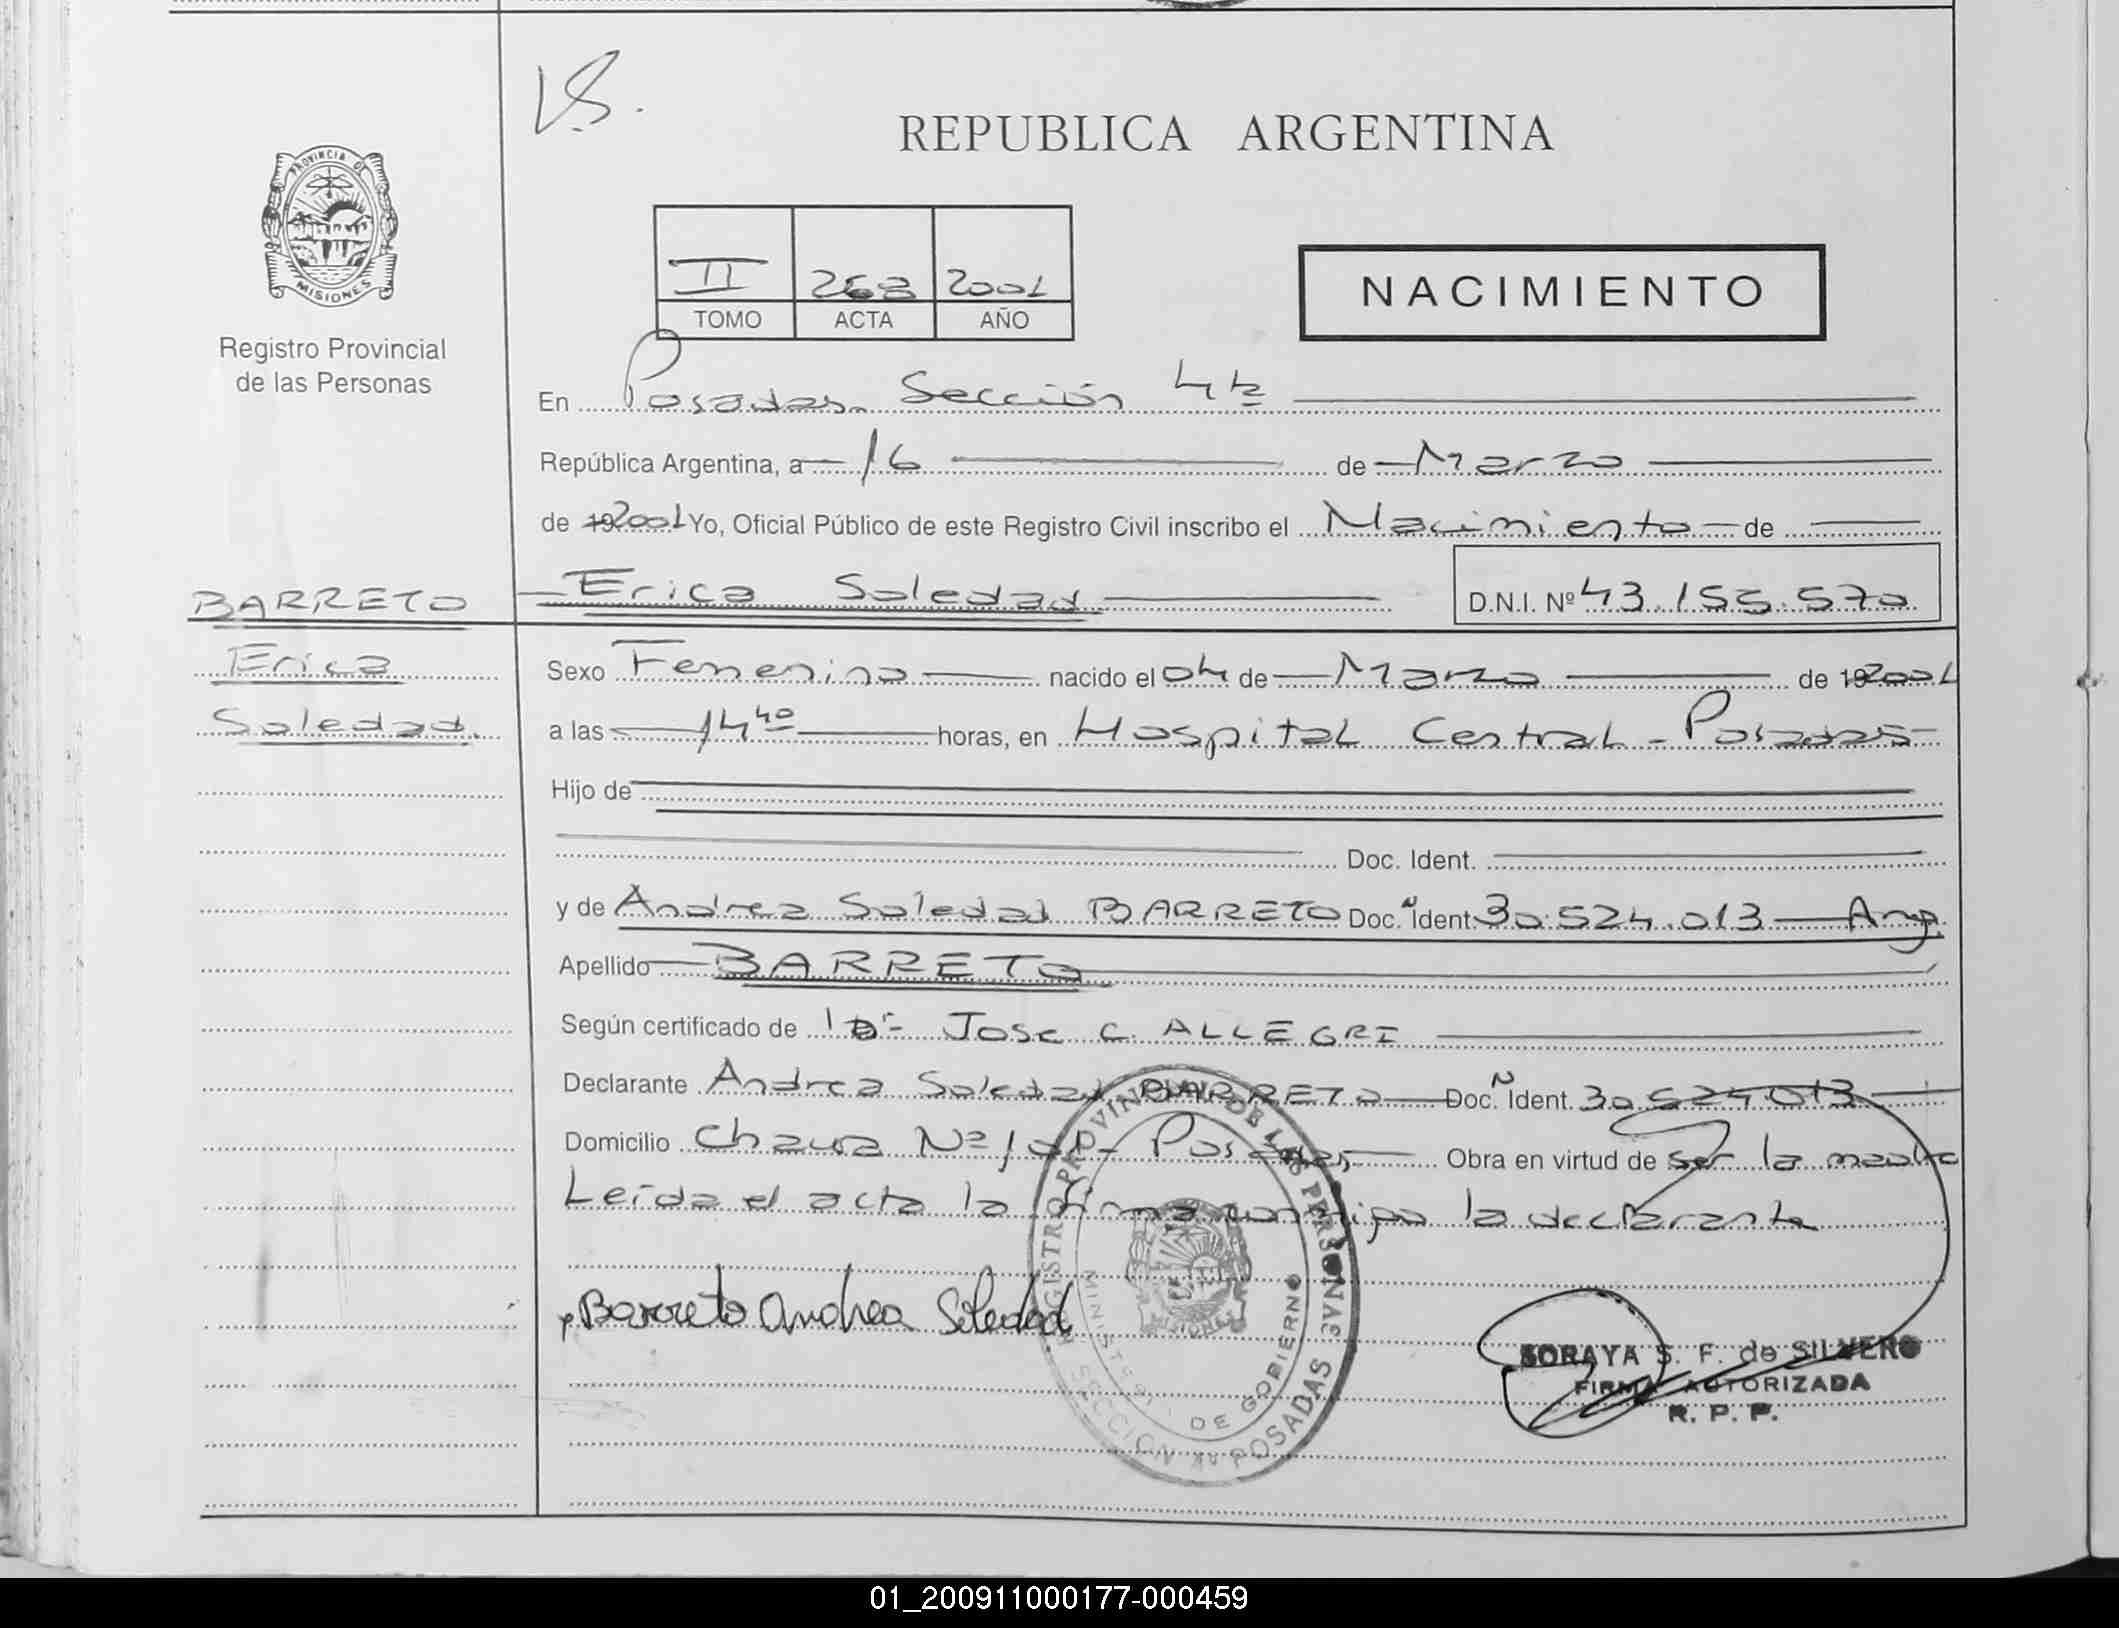 V.S.
REPUBLICA ARGENTINA
PROVINCIA DE
MISIONES
Registro Provincial
de las Personas
II 268 2001
TOMO ACTA AÑO
NACIMIENTO
En Posadas. Sección 4ta
República Argentina, a 16 de Marzo
de 192001 Yo, Oficial Público de este Registro Civil inscribo el Nacimiento de
BARRETO Erica Soledad D.N.I. Nº 43.155.570
Erica Sexo Femenino nacido el 04 de Marzo de 192001
Soledad. a las 14 40 horas, en Hospital Central - Posadas
Hijo de
Doc. Ident.
y de Andrea Soledad BARRETO Doc. Ident. 30.524.013 Arg.
Apellido BARRETO
Según certificado de Dr. Jose C. ALLEGRI
Declarante Andrea Soledad BARRETO Doc. Ident. 30.524.013
Domicilio Chacra Nº Posadas Obra en virtud de ser la madre
Leída el acta la firma conmigo la declarante
Barreto Andrea Soledad
REGISTRO PROVINCIAL DE LAS PERSONAS
MINISTERIO DE GOBIERNO
SECCION 4ta POSADAS
SORAYA S. F. de SILVERO
FIRMA AUTORIZADA
R. P. P.
01_200911000177-000459